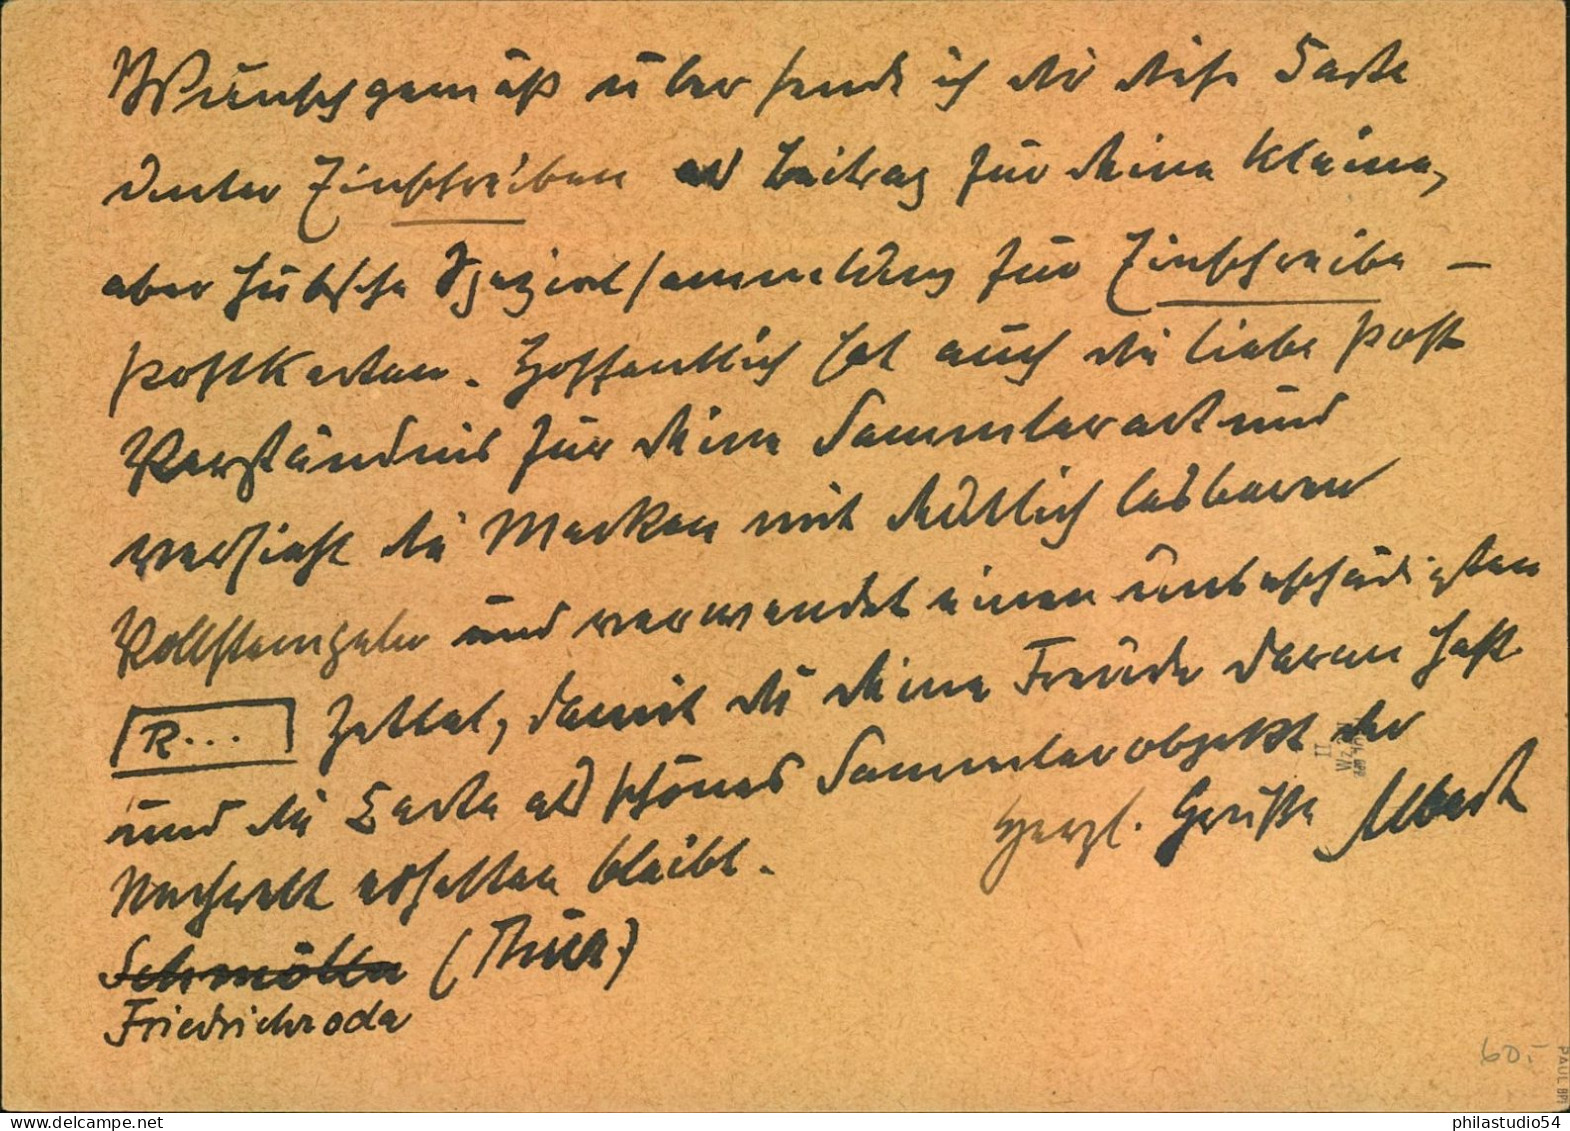 Wunschgemäß übersende ich dir diese Karte
unter Einschreiben als Beitrag für deine kleine,
aber hübsche Spezialsammeldung für Einschreibe-
postkarten. Hoffentlich hat auch die liebe Post
Verständnis für deine Sammlerart und
versieht die Marken mit deutlich lesbaren
Vollstempeln und verwendet einen unbeschädigten
R... Zettel, damit du deine Freude daran hast
und die Karte als schönes Sammlerobjekt der
Nachwelt erhalten bleibt.
Herzl. Grüße Albert
Schmölln (Thür)
Friedrichroda
60.-
PAUL BPP
philastudio54